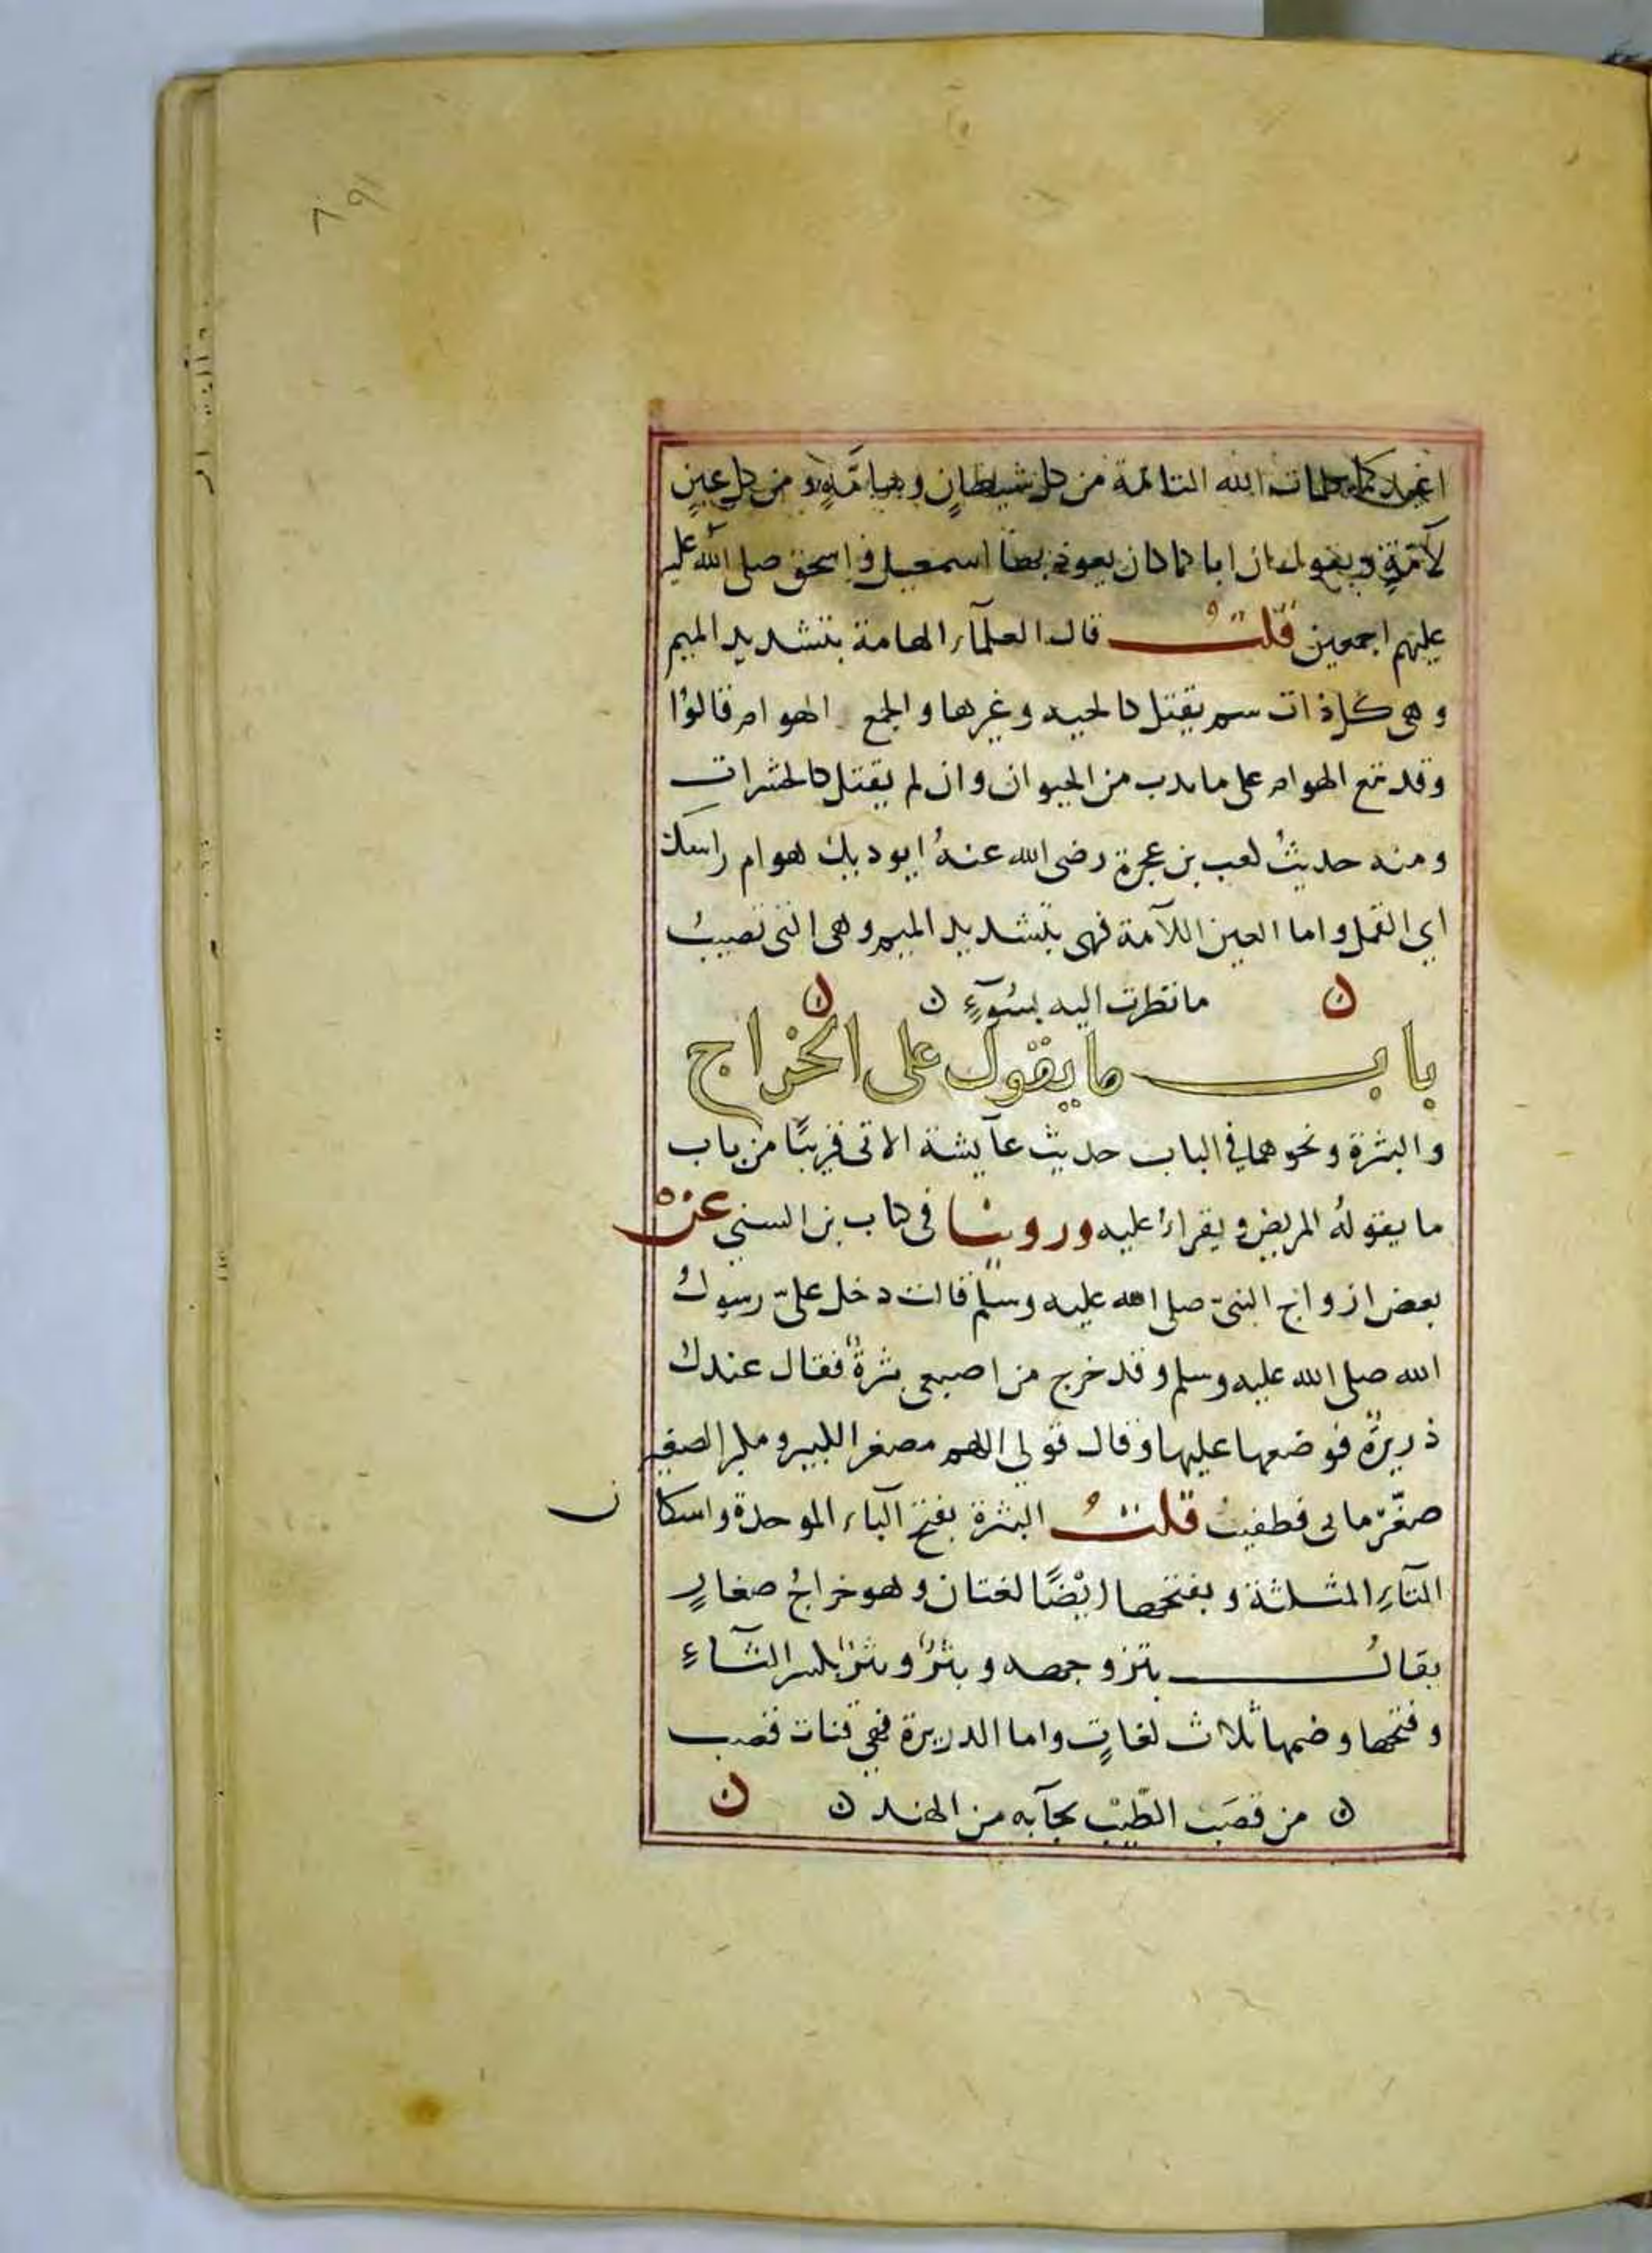 اعيذكما بكلمات الله التامة من كل شيطانٍ وهامَّةٍ ومن كل عينٍ
لآمّةٍ ويقول ان اباكما كان يعوذ بها اسمعيل واسحق صلى الله عليه
عليهم اجمعين قلتُ قال العلمآء الهامة بتشديد الميم
وهى كل ذات سم يقتل كالحيه وغيرها والجمع الهوام قالوُا
وقد تقع الهوام على ما يدب من الحيوان وان لم يقتل كالحشرات
ومنه حديثُ كعب بن عجرة رضى الله عنهُ ايوديك هوام راسك
اي القمل واما العين اللآمة فهى بتشديد الميم وهى التى تصيبُ
ن ما نظرت اليه بسُوٓءٍ ن ن
باب ما يقول على الخراج
والبثرة ونحوهما فى الباب حديث عآيشة الاتى قريبًا من باب
ما يقولهُ المريض ويقراءُ عليه وروينا فى كتاب بن السنى عنْ
بعض ازواج النبىّ صلى الله عليه وسلم قالت دخل علىّ رسولُ
الله صلى الله عليه وسلم وقد خرج من اصبعى بثرةٌ فقال عندك
ذريرةٌ فوضعها عليها وقال قولى اللهم مصغر الكبير ومكبر الصغير
صغّر ما بى فطفيتْ قلتُ البثرة بفتح البآء الموحدة واسكان
الثآءِ المثلثة وبفتحها ايْضًا لغتان وهو خراجُ صغارٍ
يقالُ بثر وجهه وبثرُ وبثرُ بكسر الثآءِ
وفتحها وضمها ثلاث لغاتٍ واما الدريرة فهى فتات قصب
ن من قصَب الطّيْب يجآبه من الهند ن ن